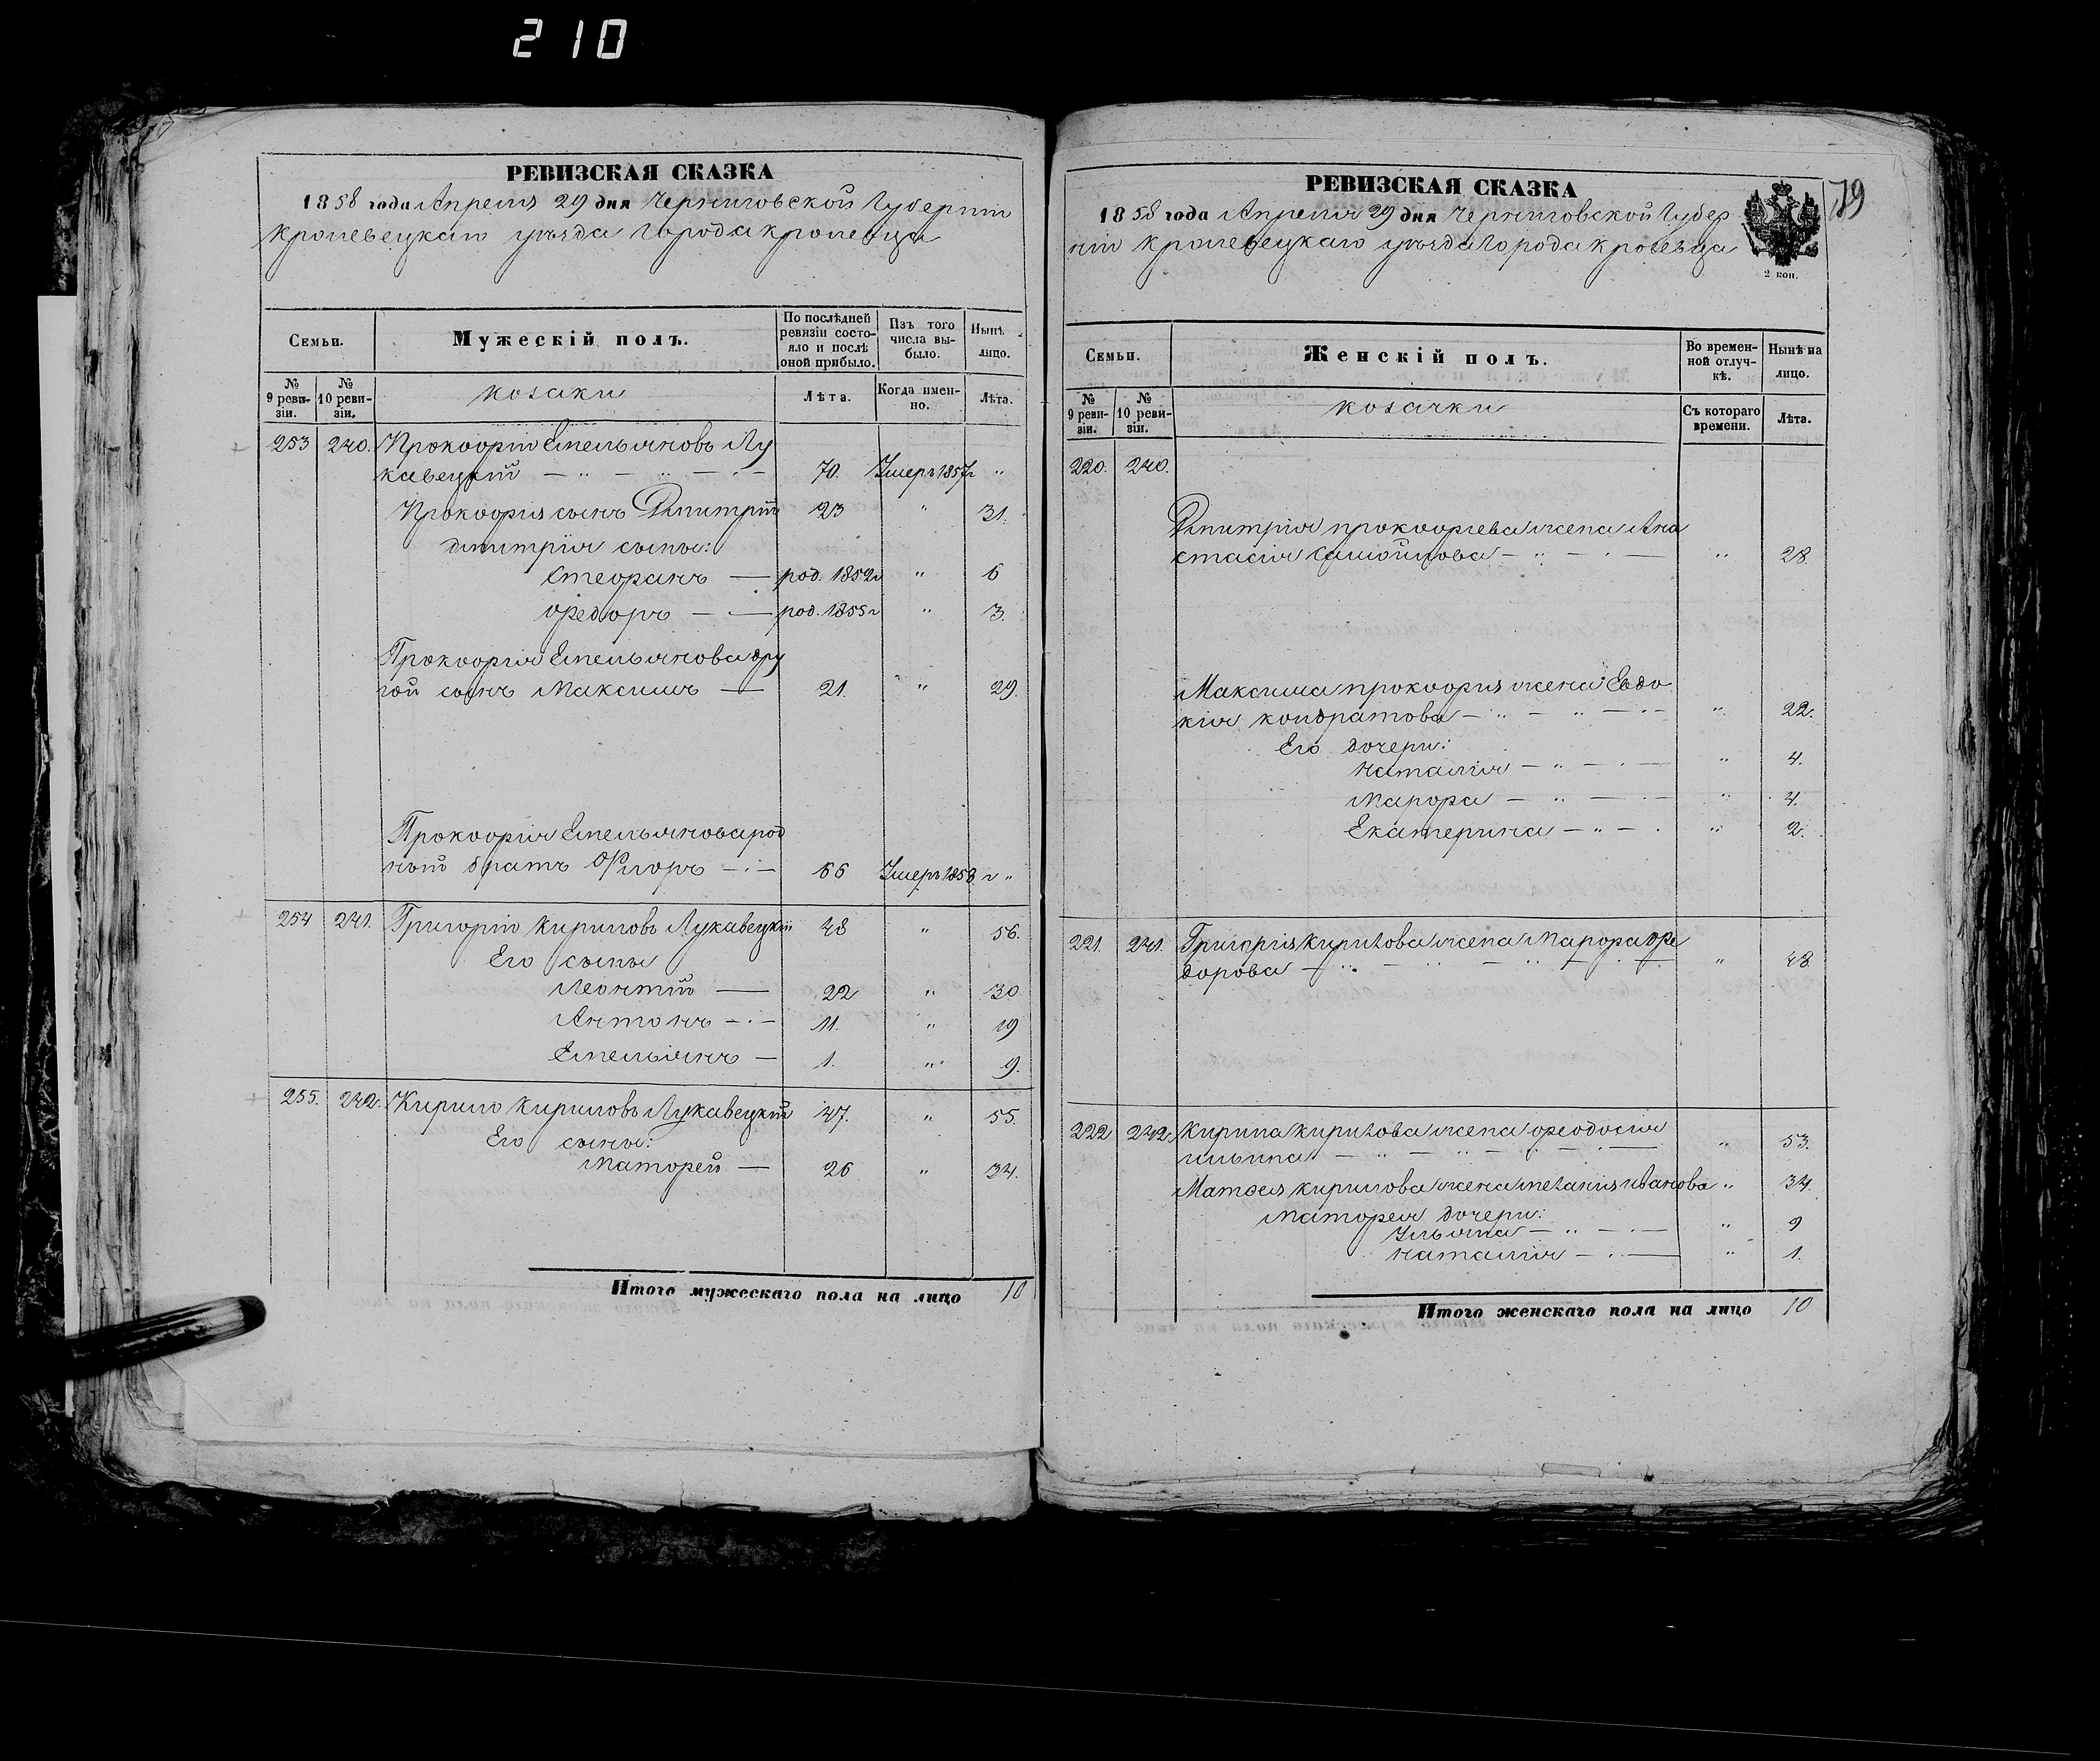 210
РЕВИЗСКАЯ СКАЗКА
1858 года Апреля 29 дня Черниговской Губерніи
Кролевецкаго уѣзда Города Кролевца
Семьи.
Мужескій полъ.
По послѣдней ревизіи состояло и послѣ оной прибыло.
Изъ того числа выбыло.
Нынѣ лицо.
№ 9 ревизіи.
№ 10 ревизіи.
козаки
Лѣта.
Когда именно.
Лѣта.
253 240. Прокофій Емельяновъ Лу
кавецкій — " — " — · — 70. Умеръ 1857г "
Прокофія сынъ Дмитрій 23 " 31.
Дмитрія сыны:
Стефанъ — род. 1852г " 6
Федоръ — · — род. 1855г " 3.
Прокофія Емельянова дру
гой сынъ Максимъ — 21. " 29.
Прокофія Емельянова род
ной братъ Флоръ — · — 66 Умеръ 1858 г "
254 241. Григорій Кириловъ Лукавецкій 48 " 56.
Его сыны
Леонтій — 22 " 30
Антонъ — · — 11. " 19
Емельянъ — 1. " 9.
255. 242. Кирило Кириловъ Лукавецкій 47. " 55.
Его сыны:
Матфей — 26 " 34.
Итого мужескаго пола на лицо 10
РЕВИЗСКАЯ СКАЗКА
179
1858 года Апреля 29 дня Черниговской Губер
ніи Кролевецкаго уѣзда Города Кролевца
2 коп.
Семьи.
Женскій полъ.
Во временной отлучкѣ.
Нынѣ на лицо.
№ 9 ревизіи.
№ 10 ревизіи.
козачки
Съ котораго времени.
Лѣта.
220. 240.
Дмитрія Прокофіева жена Ана
стасія Самойлова — " — · — " 28.
Максима Прокофія жена Евдо
кія Кондратова — " — " — · — " 22.
Его дочери:
Наталія — " — · — " 4.
Марфа — " — · — " 4.
Екатерина — " — · " 2.
221. 241. Григорія Кирилова жена Марфа Фе
дорова — " — " — " — · — " 48
222 242. Кирила Кирилова жена Феодосія
Ильина — " — " — " — · — " 53.
Матфея Кирилова жена Меланія Иванова " 34.
Матфея дочери:
Ульяна — " — · — " 9
Наталія — · — " 1.
Итого женскаго пола на лицо 10